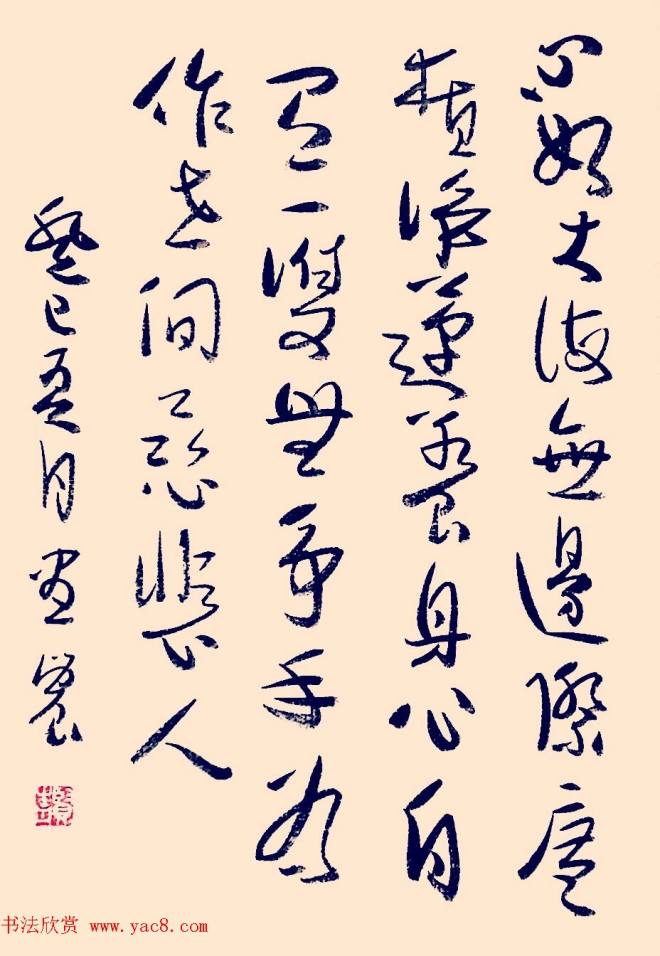 心如大海無邊際廣
植淨蓮養身心自
有一雙無事手為
作世間慈悲人
癸巳夏月
书法欣赏 www.yac8.com